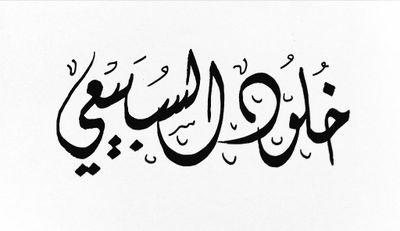 خُلُود السُبَيْعي